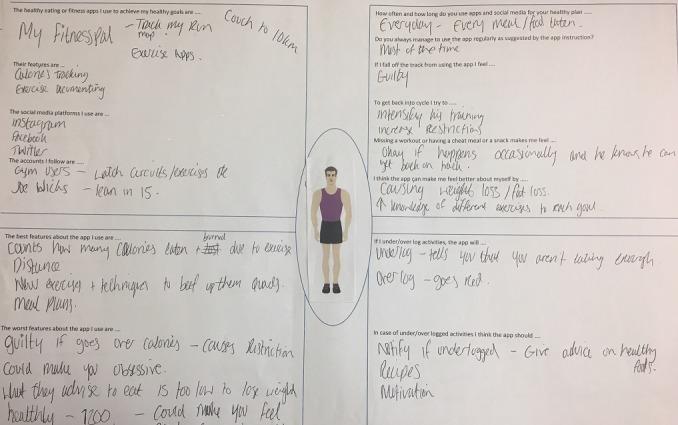 The healthy eating or fitness apps I use to achieve my healthy goals are ....
My Fitnesspal
- Track my Run
map!
Couch to 10km
Exercise Apps.
Their features are ...
Calories Tracking
Exercise documenting
The social media platforms I use are ...
Instagram
Facebook
Twitter
The accounts I follow are ....
Gym users - Watch circuits/exercises etc
Joe Wicks - lean in 15.
The best features about the app I use are ....
Counts how many calories eaten + burned due to exercise
Distance
New exercises + techniques to beef up them quads.
Meal Plans.
The worst features about the app I use are ....
guilty if goes over calories - causes restriction
Could make you obsessive.
What they advise to eat is too low to lose weight
healthily - 1200 - Could make you feel
How often and how long do you use apps and social media for your healthy plan ....
Everyday - Every meal/food eaten.
Do you always manage to use the app regularly as suggested by the app instruction?
Most of the time
If I fall off the track from using the app I feel ....
Guilty
To get back into cycle I try to ....
Intensify his training
increase Restrictions
Missing a workout or having a cheat meal or a snack makes me feel ....
Okay if happens occasionally and he knows he can
get back on track.
I think the app can make me feel better about myself by ....
Causing weight loss / fat loss.
↑ knowledge of different exercises to reach goal.
If I under/over log activities, the app will ...
Underlog - tells you that you aren't eating enough
Overlog - goes red.
In case of under/over logged activities I think the app should ....
Notify if underlogged - Give advice on healthy
foods.
Recipes
Motivation